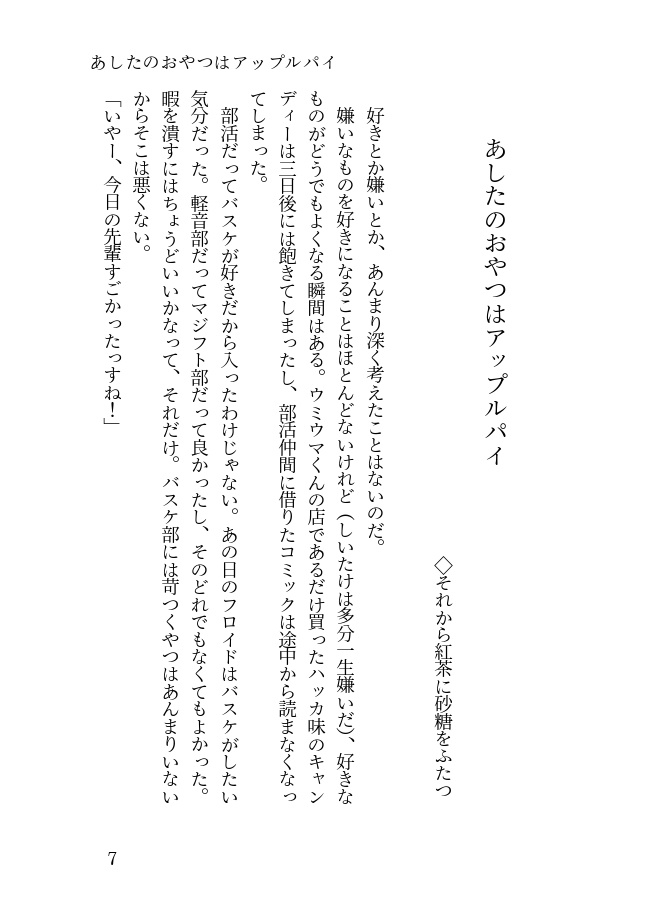 あしたのおやつはアップルパイ
あしたのおやつはアップルパイ
◇それから紅茶に砂糖をふたつ
好きとか嫌いとか、あんまり深く考えたことはないのだ。
嫌いなものを好きになることはほとんどないけれど（しいたけは多分一生嫌いだ）、好きな
ものがどうでもよくなる瞬間はある。ウミウマくんの店であるだけ買ったハッカ味のキャン
ディーは三日後には飽きてしまったし、部活仲間に借りたコミックは途中から読まなくなっ
てしまった。
部活だってバスケが好きだから入ったわけじゃない。あの日のフロイドはバスケがしたい
気分だった。軽音部だってマジフト部だって良かったし、そのどれでもなくてもよかった。
暇を潰すにはちょうどいいかなって、それだけ。バスケ部には苛つくやつはあんまりいない
からそこは悪くない。
「いやー、今日の先輩すごかったっすね！」
7